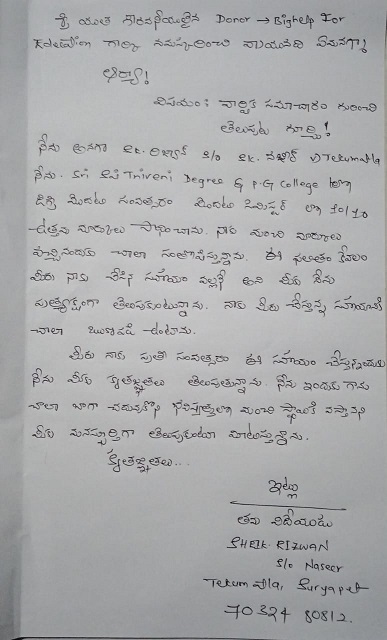 శ్రీ యుత గౌరవనీయులైన Donor → Bighelp For
Education గార్కి నమస్కరించి వ్రాయునది ఏమనగా!
ఆర్యా!
విషయం: వార్షిక సమాచారం గురించి
తెలుపుట గూర్చి!
నేను అనగా SK. రిజ్వాన్ S/o SK. నజీర్ V) Tekumatla
నేను. Sri Sai Triveni Degree & P.G College లోని
డిగ్రీ మొదటి సంవత్సరం మొదటి సెమిస్టర్ లో 10/10
ఉత్తమ మార్కులు సాధించాను. నాకు మంచి మార్కులు
వచ్చినందుకు చాలా సంతోషిస్తున్నాను. ఈ ఫలితం కేవలం
మీరు నాకు చేసిన సహాయం వల్లనే అని మీకు నేను
ప్రత్యేకంగా తెలుపుకుంటున్నాను. నాకు మీరు చేస్తున్న సహాయానికి
చాలా ఋణపడి ఉంటాను.
మీరు నాకు ప్రతి సంవత్సరం ఈ సహాయం చేస్తున్నందుకు
నేను మీకు కృతజ్ఞతలు తెలుపుతున్నాను. నేను ఇందుకు గాను
చాలా బాగా చదువుకొని భవిష్యత్తులో మంచి స్థాయికి వస్తానని
మీకు మనస్ఫూర్తిగా తెలుపుకుంటూ మాటిస్తున్నాను.
కృతజ్ఞతలు...
ఇట్లు
తమ విధేయుడు
SHEIK RIZWAN
S/o Naseer
Tekumatla, Suryapet
70324 80812.